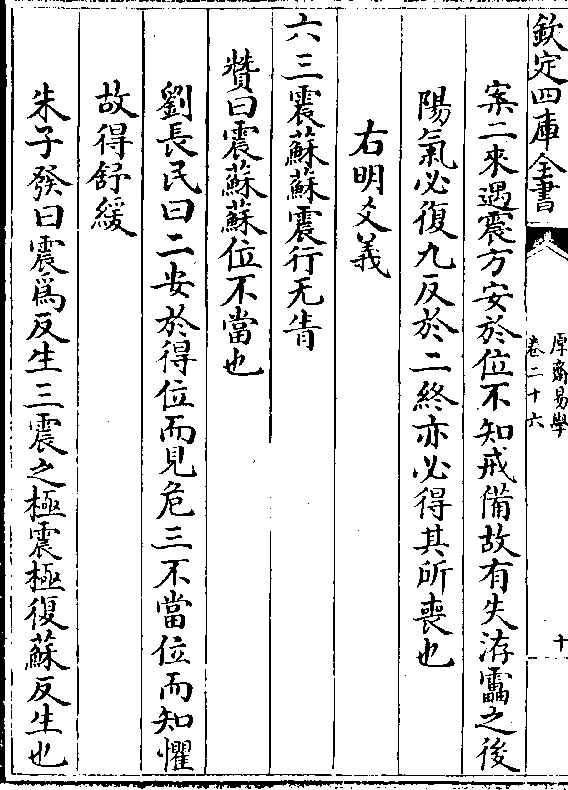 欽定四庫全書
厚齋易學
卷二十六
十
案二來遇震方安於位不知戒備故有失洊雷之後
陽氣必復九反於二終亦必得其所喪也
右明爻義
六三震蘇蘇震行无眚
贊曰震蘇蘇位不當也
劉長民曰二安於得位而見危三不當位而知懼
故得舒緩
朱子發曰震爲反生三震之極震極復蘇反生也